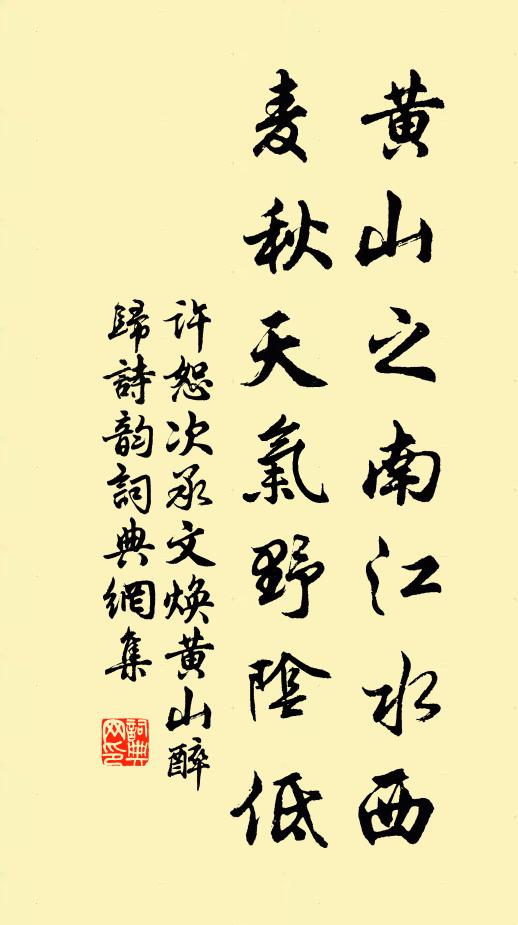 黃山之南江水西
麦秋天氣野陰低
許恕次承文煥黃山醉
歸詩韵詞典網集
詞典
网印